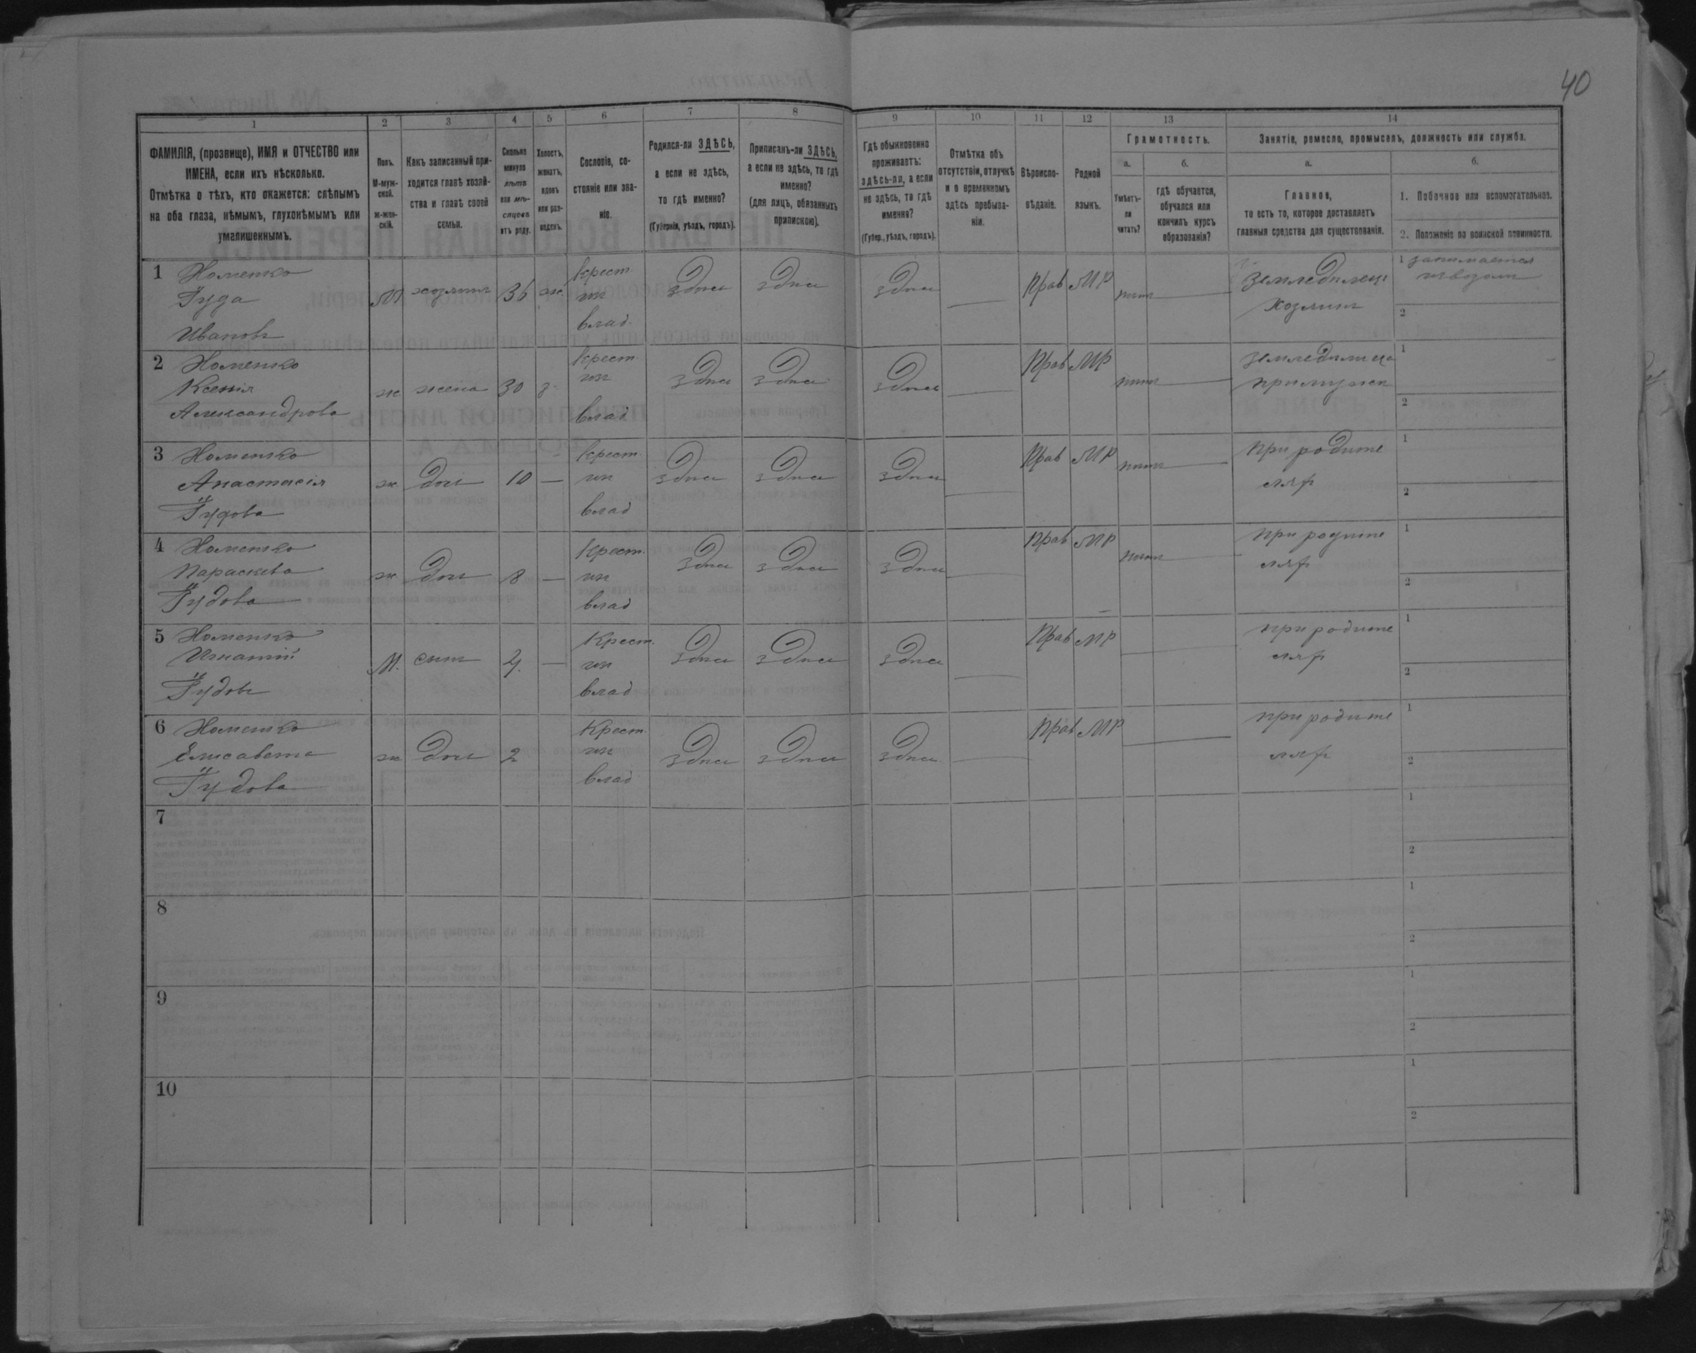 40
1 2 3 4 5 6 7 8 9 10 11 12 13 14
ФАМИЛІЯ, (прозвище), ИМЯ и ОТЧЕСТВО или
ИМЕНА, если ихъ нѣсколько.
Отмѣтка о тѣхъ, кто окажется: слѣпымъ
на оба глаза, нѣмымъ, глухонѣмымъ или
умалишеннымъ.
Полъ.
М-муж-
ской.
ж-жен-
скій.
Какъ записанный при-
ходится главѣ хозяй-
ства и главѣ своей
семьи.
Сколько
минуло
лѣтъ
или мѣ-
сяцевъ
отъ роду.
Холостъ,
женатъ,
вдовъ
или раз-
веденъ.
Сословіе, со-
стояніе или зва-
ніе.
Родился-ли ЗДѢСЬ,
а если не здѣсь,
то гдѣ именно?
(Губернія, уѣздъ, городъ).
Приписанъ-ли ЗДѢСЬ,
а если не здѣсь, то гдѣ
именно?
(для лицъ, обязанныхъ
припискою).
Гдѣ обыкновенно
проживаетъ:
здѣсь-ли, а если
не здѣсь, то гдѣ
именно?
(Губер., уѣздъ, городъ).
Отмѣтка объ
отсутствіи, отлучкѣ
и о временномъ
здѣсь пребыва-
ніи.
Вѣроиспо-
вѣданіе.
Родной
языкъ.
Грамотность.
а. б.
Умѣетъ-
ли
читать?
гдѣ обучается,
обучался или
кончилъ курсъ
образованія?
Занятіе, ремесло, промыселъ, должность или служба.
а. б.
Главное,
то есть то, которое доставляетъ
главныя средства для существованія.
1. Побочное или вспомогательное.
2. Положеніе по воинской повинности.
1 Хоменко
Іуда
Ивановъ
М хозяинъ 36 ж
Крест
ин
влад.
здѣсь здѣсь здѣсь — Прав МР нѣтъ
земледѣлец
хозяин
1 занимается
извозом
2
2 Хоменко
Ксенія
Александрова
ж жена 30 з
Крест
ин
влад
здѣсь здѣсь здѣсь — Прав МР нѣтъ
земледѣлица
при мужѣ
1
2
3 Хоменко
Анастасія
Іудова
ж доч 10 —
Крест
ин
влад
здѣсь здѣсь здѣсь — Прав МР нѣтъ
при родите
лях
1
2
4 Хоменко
Параскева
Іудова
ж доч 8 —
Крест.
ин
влад
здѣсь здѣсь здѣсь — Прав МР нѣтъ
при родите
лях
1
2
5 Хоменко
Игнатій
Іудовъ
М. сынъ 4. —
Крест.
ин
влад
здѣсь здѣсь здѣсь — Прав МР —
при родите
лях
1
2
6 Хоменко
Елисавета
Іудова
ж доч 2
Крест.
ин
влад
здѣсь здѣсь здѣсь — Прав МР —
при родите
лях
1
2
7
1
2
8
1
2
9
1
2
10
1
2